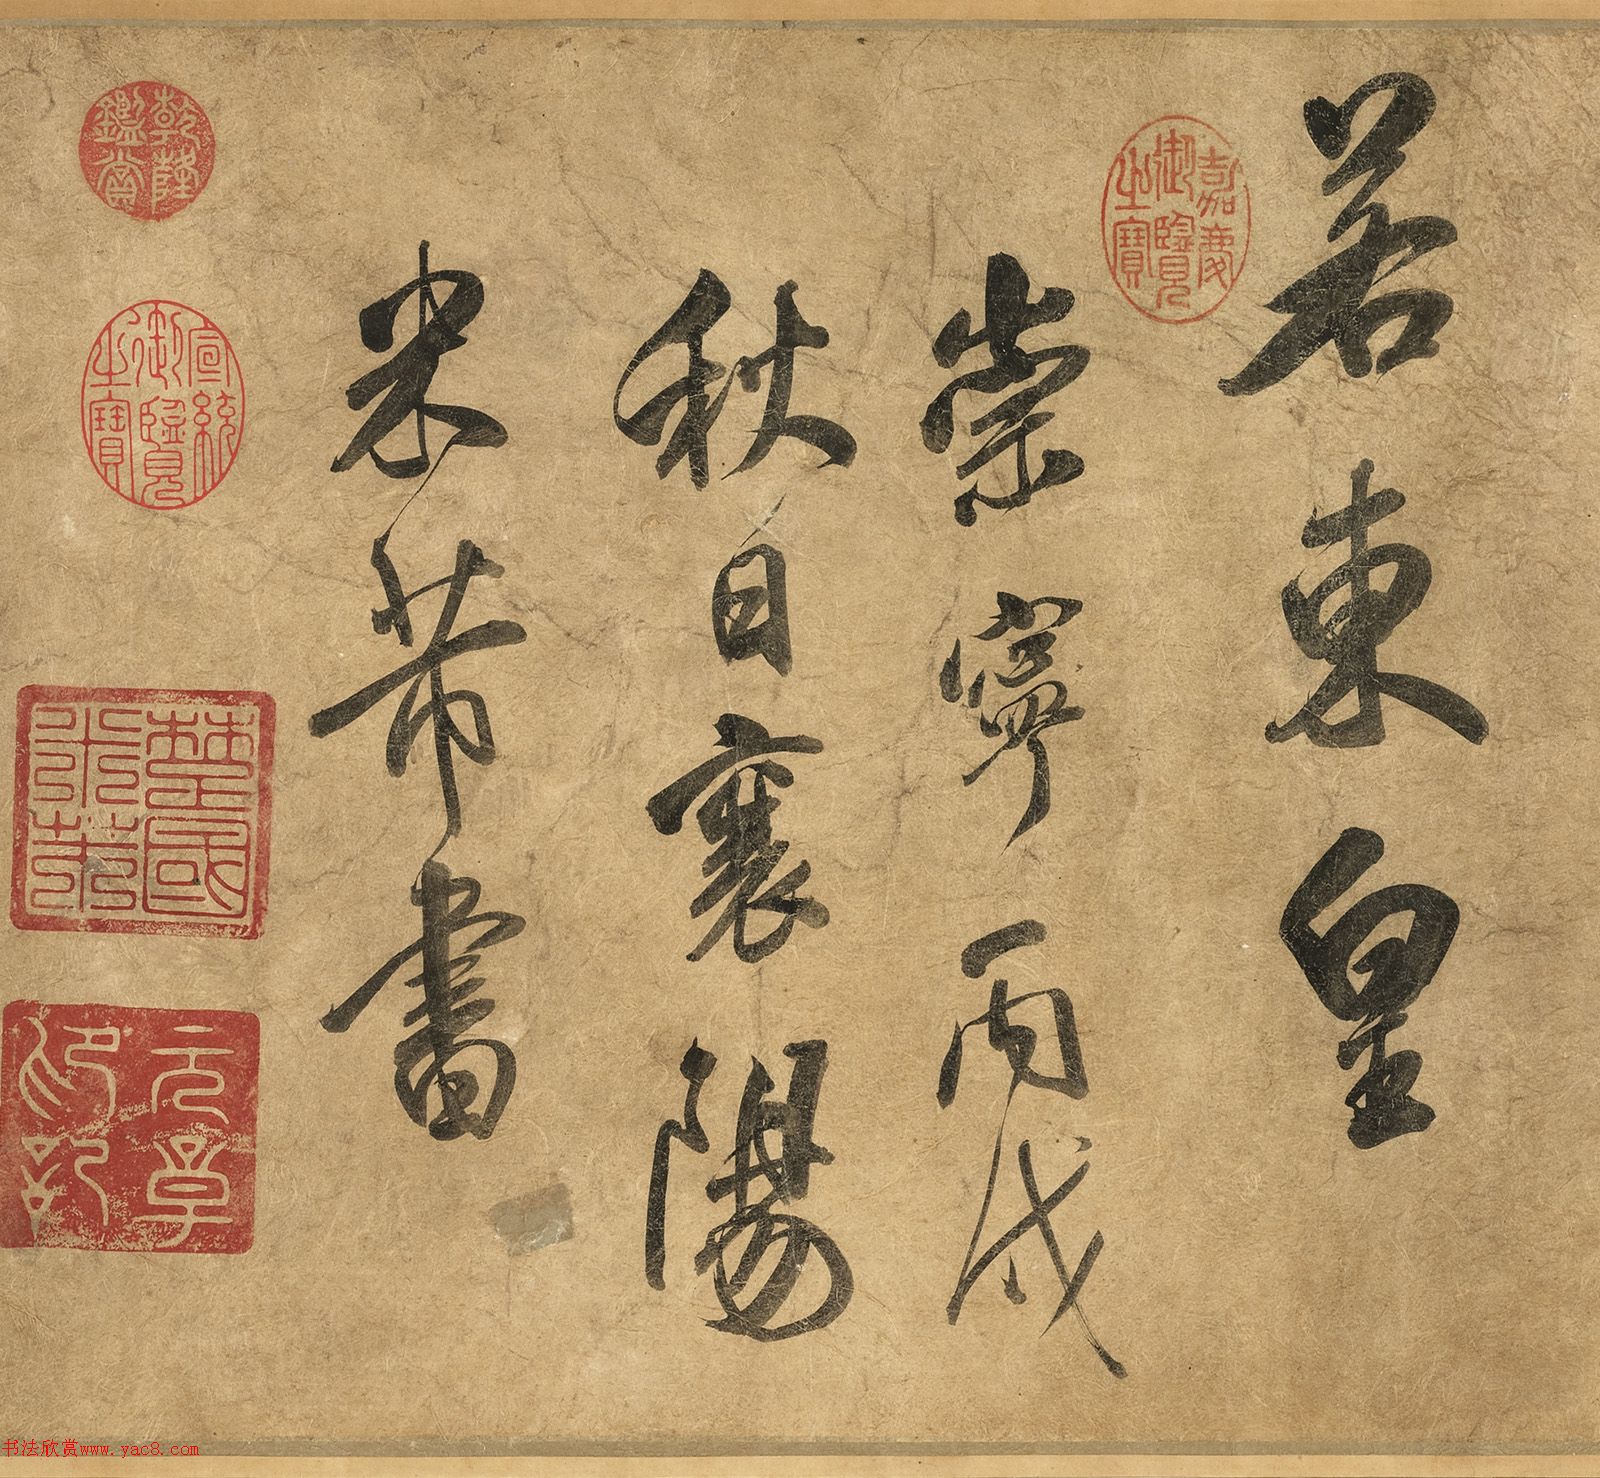 若東皇
嘉慶御覽之寶
崇寧丙戌
秋日襄陽
米芾書
乾隆鑑賞
宣統御覽之寶
楚國米芾
书法欣赏www.yac8.com